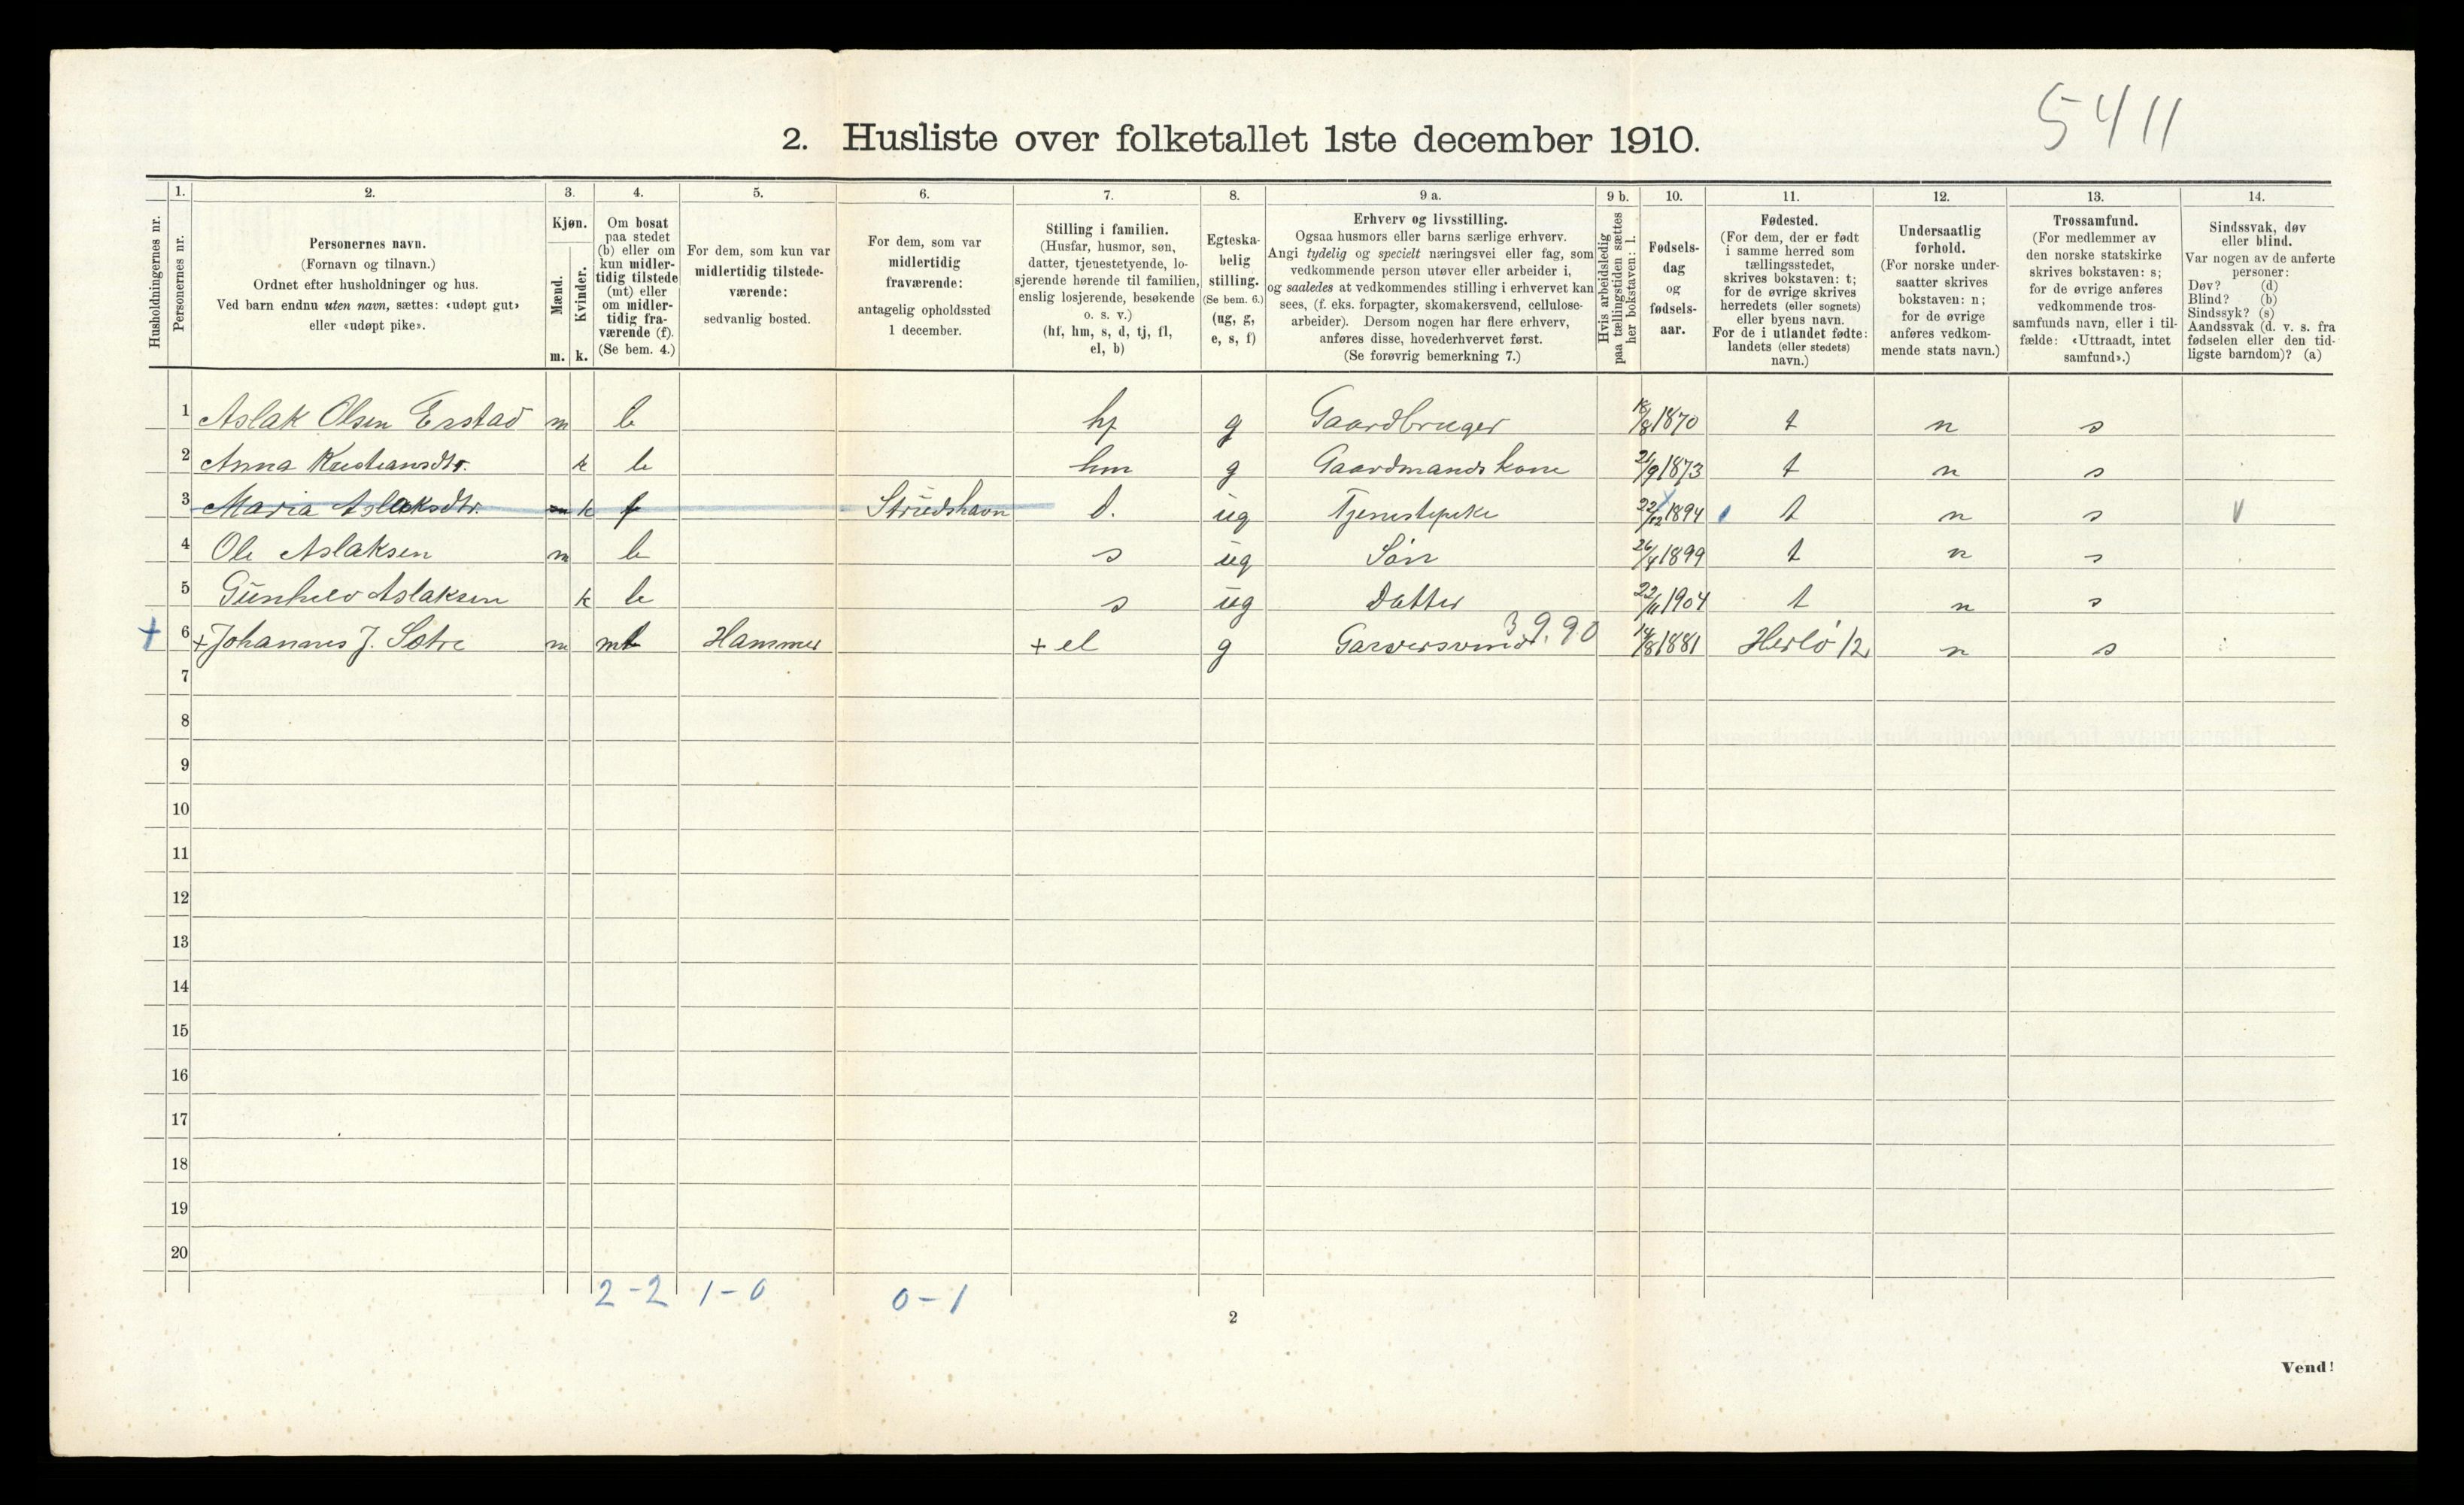 5411
2. Husliste over folketallet 1ste december 1910.
Husholdningernes nr.
1.
Personernes nr.
2.
Personernes navn.
(Fornavn og tilnavn.)
Ordnet efter husholdninger og hus.
Ved barn endnu uten navn, sættes: «udøpt gut»
eller «udøpt pike».
3.
Kjøn.
Mænd.
Kvinder.
m. k.
4.
Om bosat
paa stedet
(b) eller om
kun midler-
tidig tilstede
(mt) eller
om midler-
tidig fra-
værende (f).
(Se bem. 4.)
5.
For dem, som kun var
midlertidig tilstede-
værende:
sedvanlig bosted.
6.
For dem, som var
midlertidig
fraværende:
antagelig opholdssted
1 december.
7.
Stilling i familien.
(Husfar, husmor, søn,
datter, tjenestetyende, lo-
sjerende hørende til familien,
enslig losjerende, besøkende
o. s. v.)
(hf, hm, s, d, tj, fl,
el, b)
8.
Egteska-
belig
stilling.
(Se bem. 6.)
(ug, g,
e, s, f)
9 a.
Erhverv og livsstilling.
Ogsaa husmors eller barns særlige erhverv.
Angi tydelig og specielt næringsvei eller fag, som
vedkommende person utøver eller arbeider i,
og saaledes at vedkommendes stilling i erhvervet kan
sees, (f. eks. forpagter, skomakersvend, cellulose-
arbeider). Dersom nogen har flere erhverv,
anføres disse, hovederhvervet først.
(Se forøvrig bemerkning 7.)
9 b.
Hvis arbeidsledig
paa tællingstiden sættes
her bokstaven: l.
10.
Fødsels-
dag
og
fødsels-
aar.
11.
Fødested.
(For dem, der er født
i samme herred som
tællingsstedet,
skrives bokstaven: t;
for de øvrige skrives
herredets (eller sognets)
eller byens navn.
For de i utlandet fødte:
landets (eller stedets)
navn.)
12.
Undersaatlig
forhold.
(For norske under-
saatter skrives
bokstaven: n;
for de øvrige
anføres vedkom-
mende stats navn.)
13.
Trossamfund.
(For medlemmer av
den norske statskirke
skrives bokstaven: s;
for de øvrige anføres
vedkommende tros-
samfunds navn, eller i til-
fælde: «Uttraadt, intet
samfund».)
14.
Sindssvak, døv
eller blind.
Var nogen av de anførte
personer:
Døv? (d)
Blind? (b)
Sindssyk? (s)
Aandssvak (d. v. s. fra
fødselen eller den tid-
ligste barndom)? (a)
1 Aslak Olsen Erstad m b hf g Gaardbruger 18/8 1870 t n s
2 Anna Kristiansdtr. k b hm g Gaardmandskone 21/9 1873 t n s
3 Maria Aslaksdtr. m k f Strudshavn d. ug Tjenestepike 22/12 1894 t n s
4 Ole Aslaksen m b s ug Sön 26/4 1899 t n s
5 Gunhild Aslaksen k b s ug Datter 22/11 1904 t n s
+ 6 + Johannes J. Sotre m mt Hammer + el g Garversvend 39.90 14/8 1881 Herlö 12 n s
7
8
9
10
11
12
13
14
15
16
17
18
19
20
2-2 1-0 0-1
2
Vend!